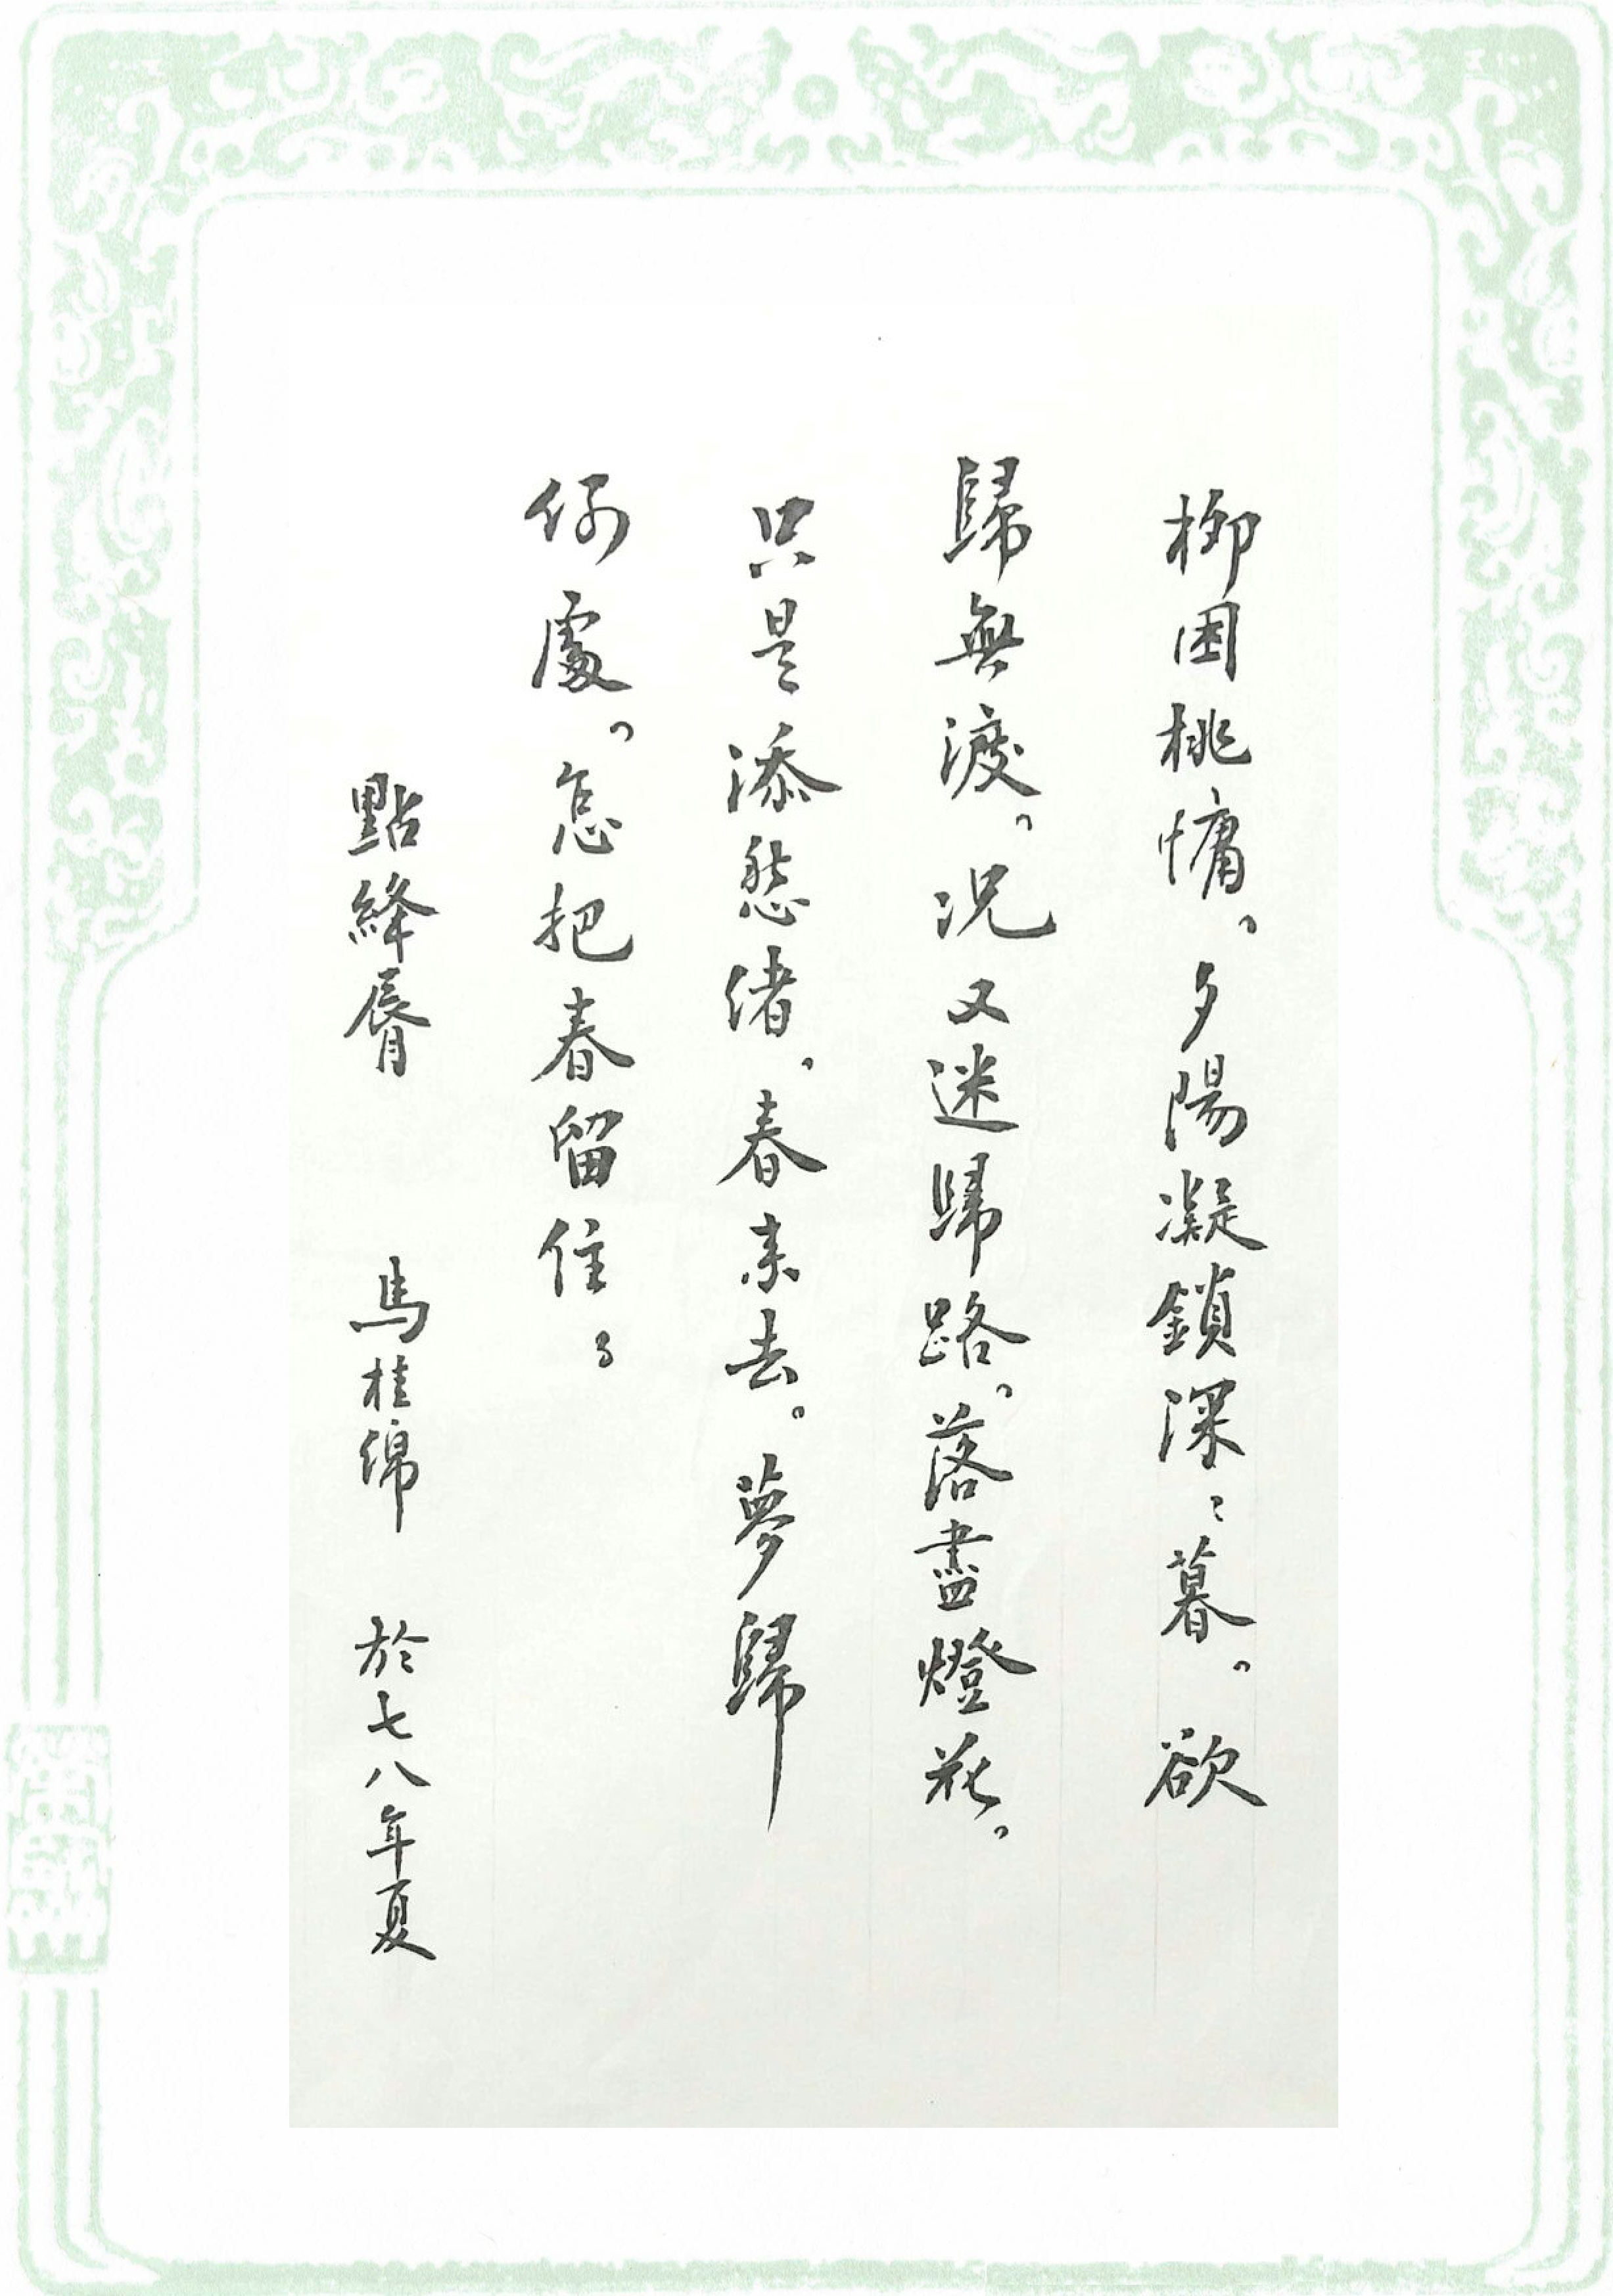 柳困桃慵。夕陽凝鎖深〻暮。欲
歸無渡。况又迷歸路。落盡燈花。
只是添愁緒。春来去。夢歸
何處。怎把春留住。
點絳唇 馬桂綿 於七八年夏